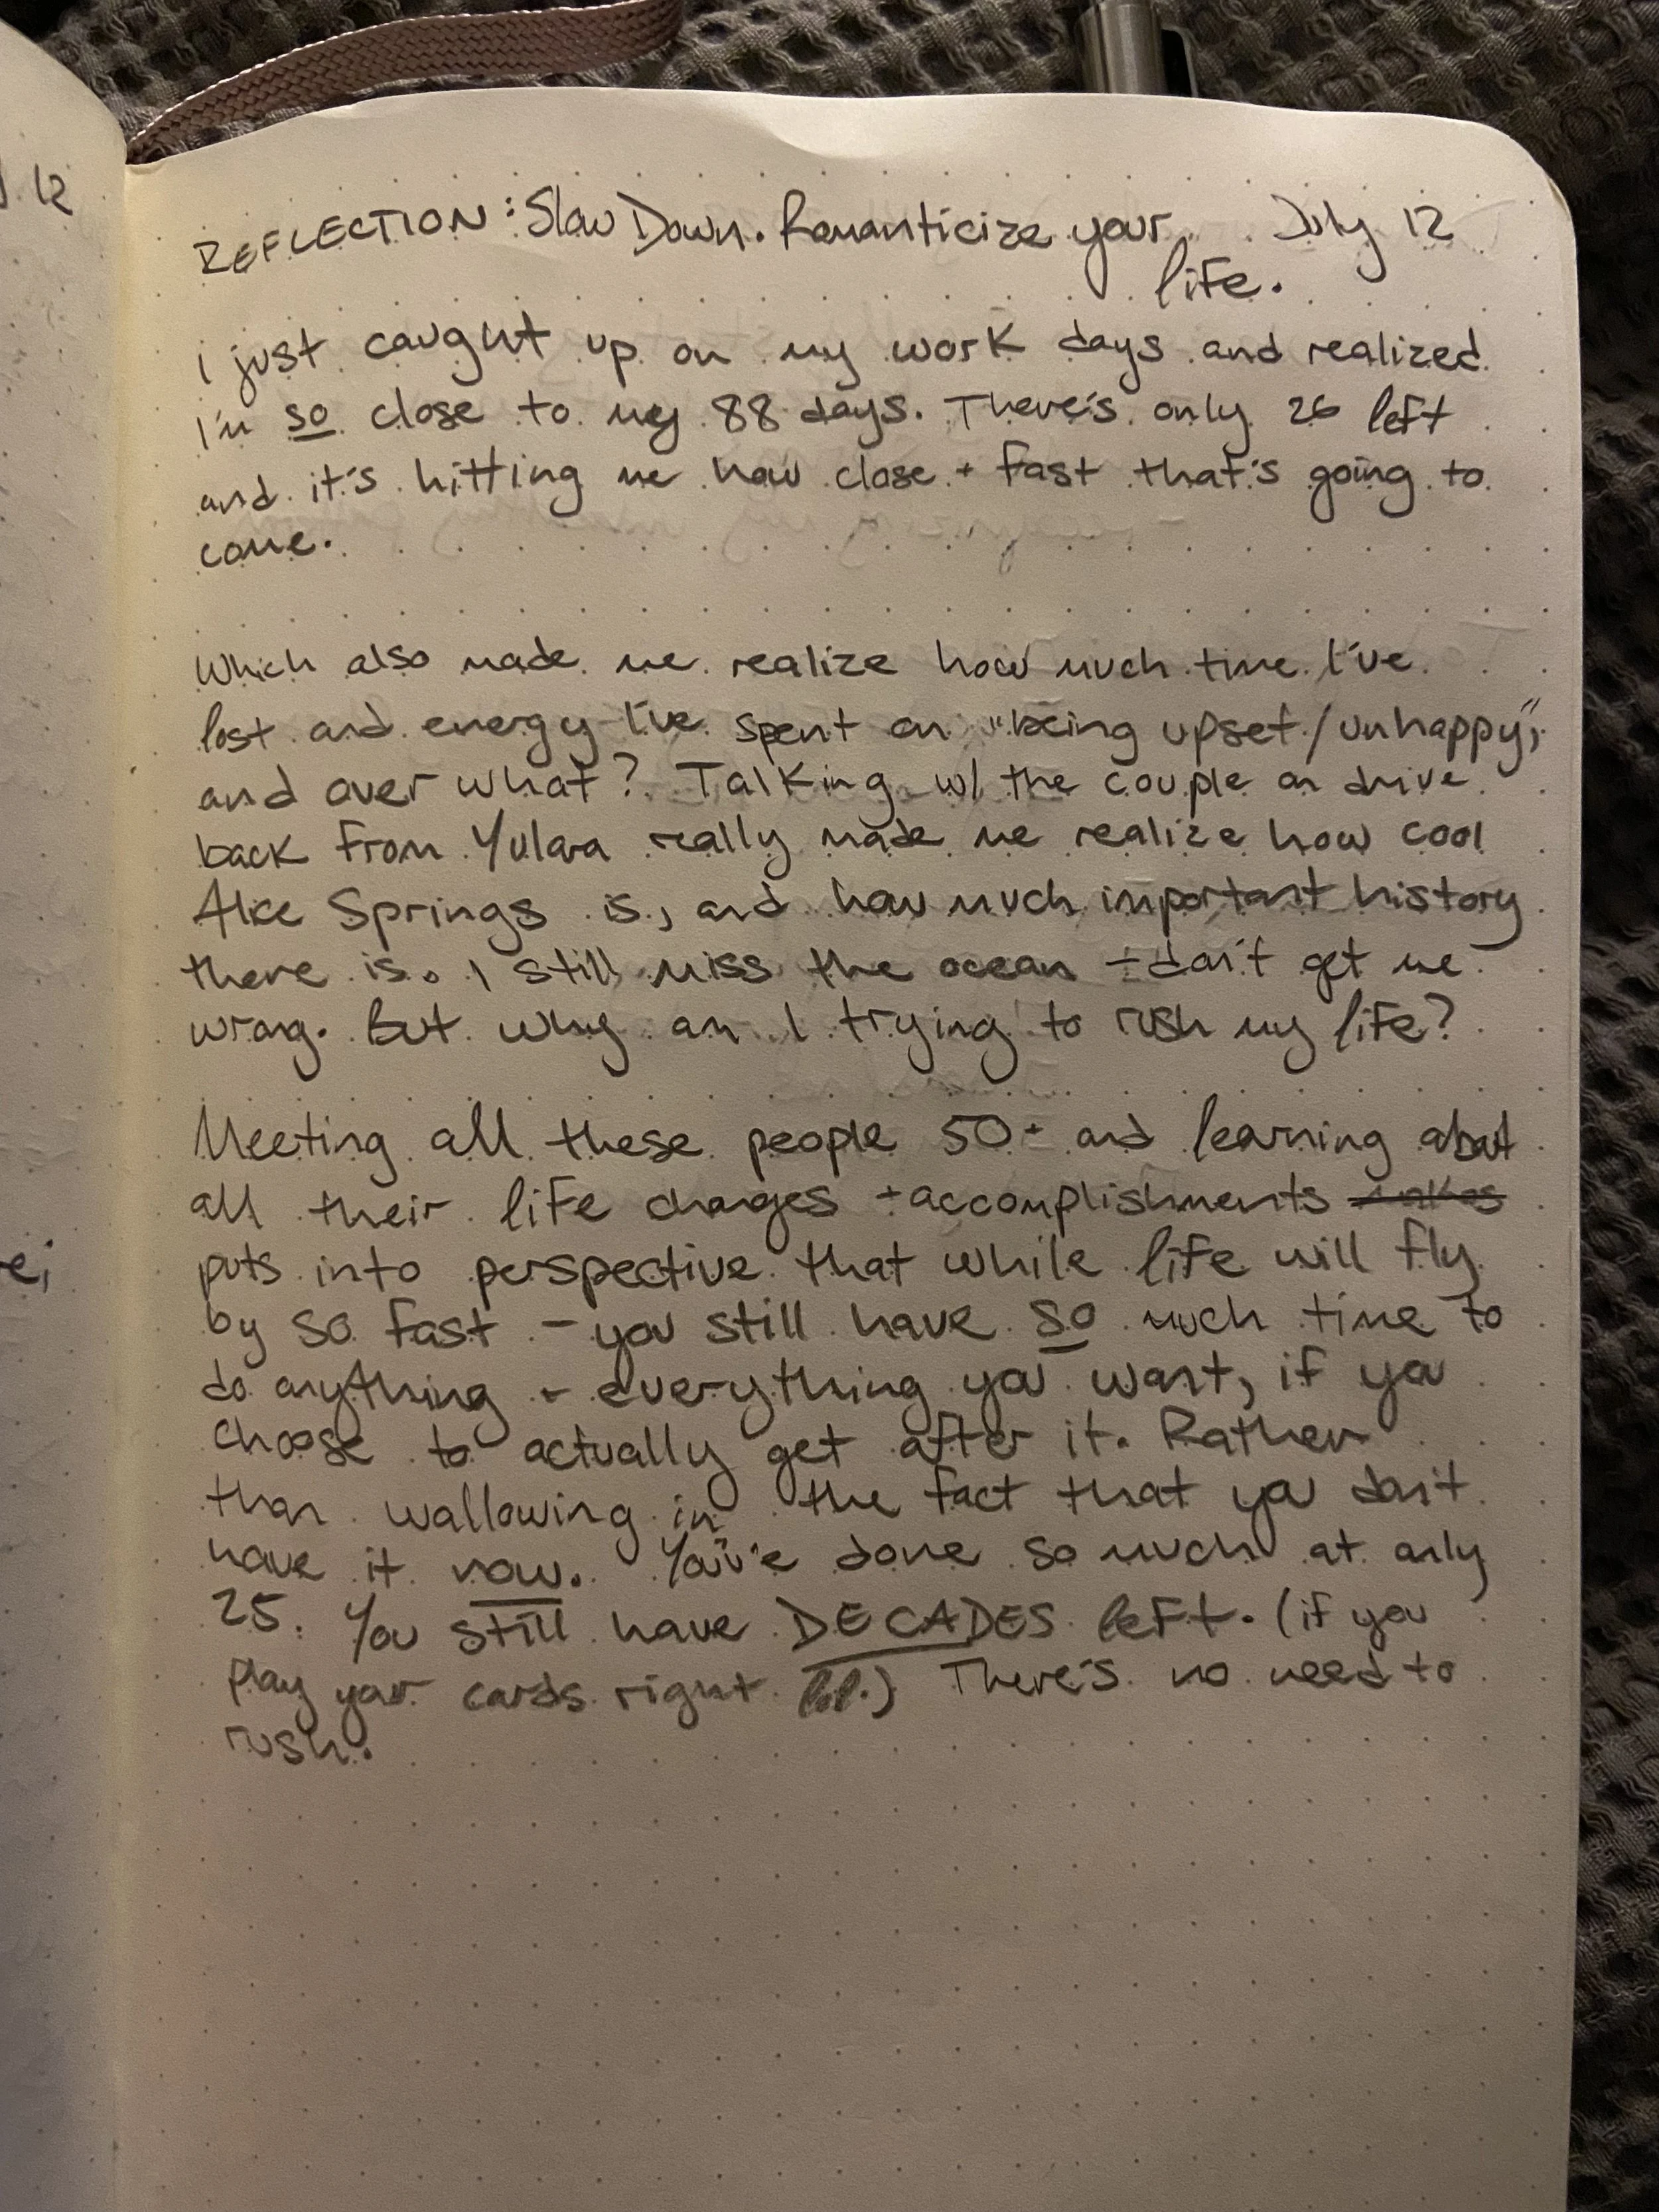 J. 12
REFLECTION: Slow Down. Romanticize your July 12
life.
I just caught up on my work days and realized
I'm so close to my 88 days. There's only 26 left
and it's hitting me how close + fast that's going to
come.
Which also made me realize how much time I've
lost and energy I've spent on "being upset/unhappy",
and over what? Talking w/ the couple on drive
back from Yulara really made me realize how cool
Alice Springs is, and how much important history
there is. I still miss the ocean - don't get me
wrong. But why am I trying to rush my life?
Meeting all these people 50+ and learning about
all their life changes + accomplishments makes
puts into perspective that while life will fly
by so fast - you still have so much time to
do anything + everything you want, if you
choose to actually get after it. Rather
than wallowing in the fact that you don't
have it now. You've done so much at only
25. You still have DECADES left. (if you
play your cards right lol.) There's no need to
rush.
e;